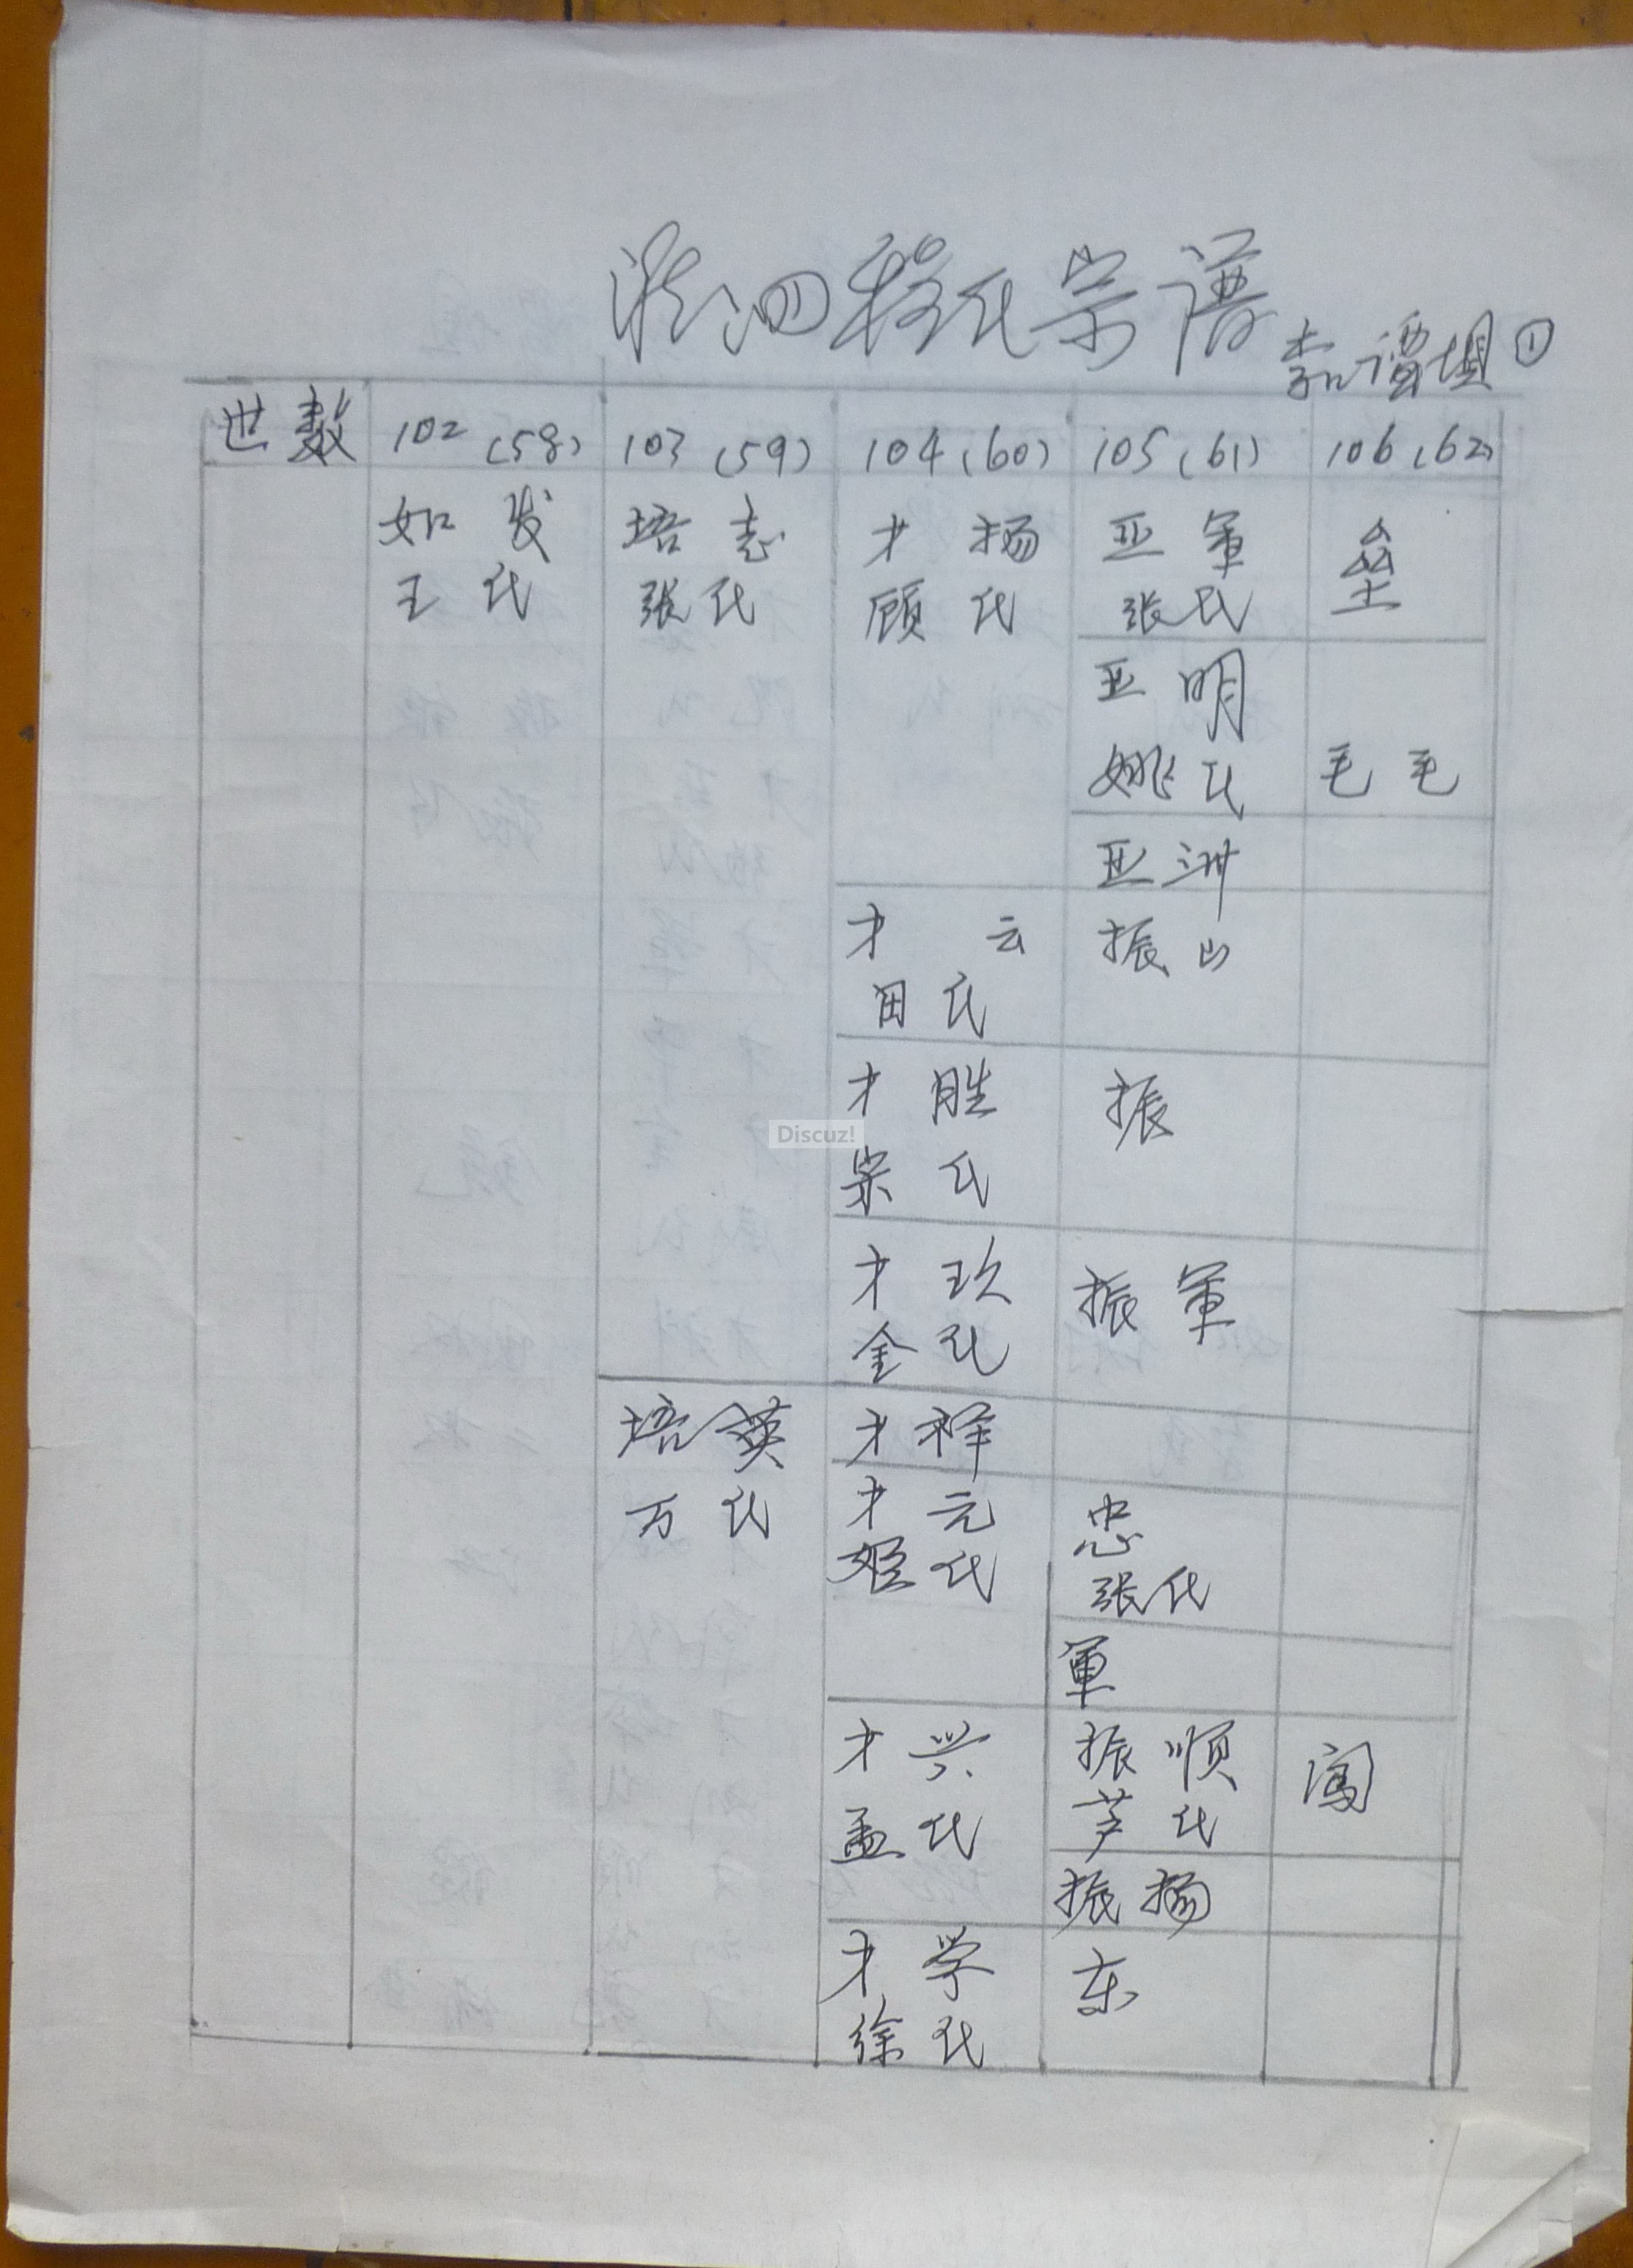 泗程氏宗谱
谭垻①
世数 102(58) 103(59) 104(60) 105(61) 106(62)
如发 培志 才扬 亚軍 垒
王氏 张氏 顾氏 张氏
亚明
姚氏 毛毛
亚洲
才云 振山
田氏
才胜 振
宗氏
才玖 振軍
金氏
培英 才祥
万氏 才元 忠
姬氏 张氏
軍
才兴 振顺 闯
孟氏 芦氏
振扬
才学 东
徐氏
Discuz!